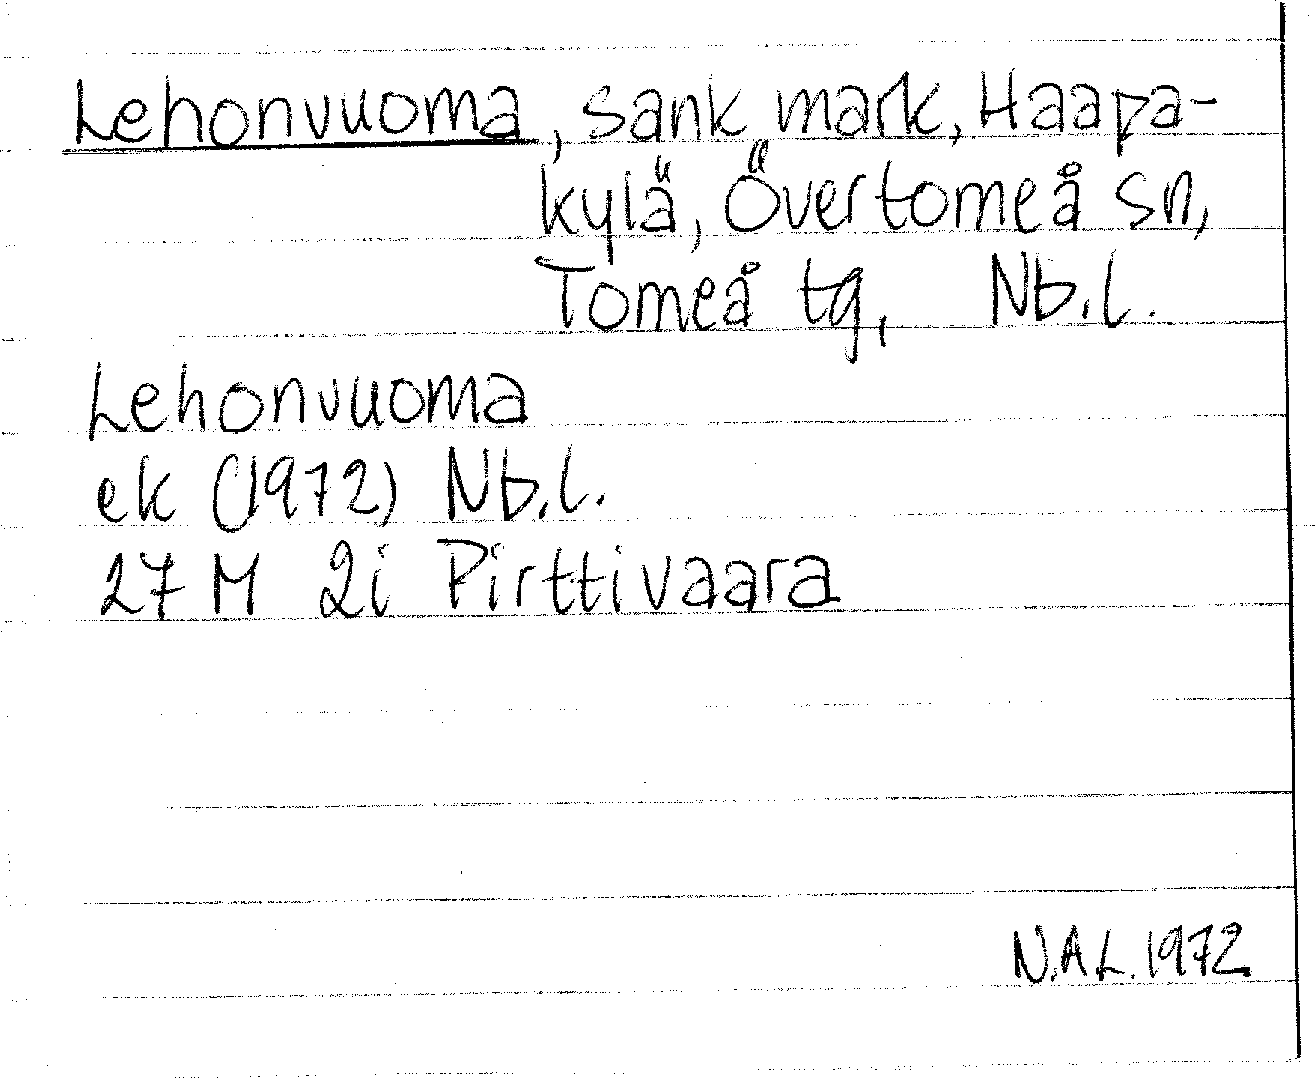 Lehonvuoma, sank mark, Haapa-
kylä, Övertorneå sn,
Torneå tg, Nb.l.
Lehonvuoma
ek (1972) Nb.l.
27 M 2i Pirttivaara
N.A.L. 1972